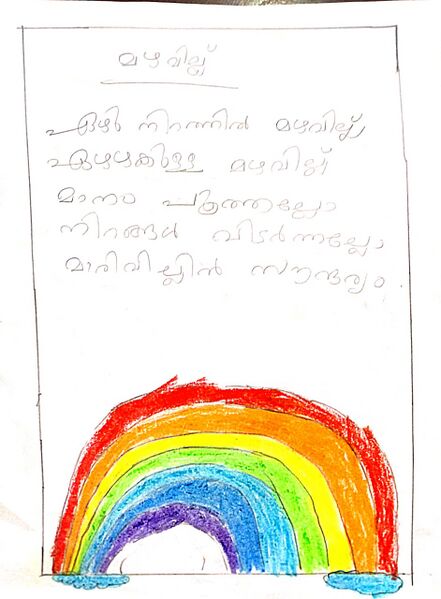 മഴവില്ല്
ഏഴു നിറത്തിൽ മഴവില്ല്
ഏഴഴകുള്ള മഴവില്ല്
മാനം പൂത്തല്ലോ
നിറങ്ങൾ വിടർന്നല്ലോ
മാരിവില്ലിൻ സൗന്ദര്യം.